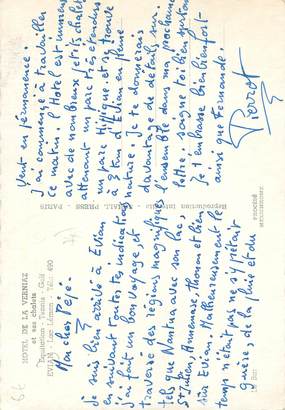 HOTEL DE LA VERNIAZ
et ses chalets
Restaurant - Tennis - Golf
EVIAN - Lac Léman - Tél: 490
Mon cher Pépé.
je suis bien arrivé à Evian
en suivant toutes tes indications
j'ai fait un bon voyage et
traversé des régions magnifiques
tels que Nantua avec son lac
St Julien, Annemasse, Thonon et bien
sûr Evian. Malheureusement le
temps n'était pas ne s'y prêtait
guère, de la pluie et du
Reproduction interdite PRESS - PARIS
PROCÉDÉ
Vent en permanence.
j'ai commencé à travailler
ce matin. l'Hotel est immense
avec de nombreux petits chalets
attenant un parc très étendus
un parc Hippique, et se trouve
à 3 km d'Evian en pleine
nature. Je te donnerai
davantage de détails sur
l'ensemble dans ma prochaine
lettre. soigne toi bien surtout
Je t'embrasse bien bien fort
ainsi que Fernande.
Pierrot